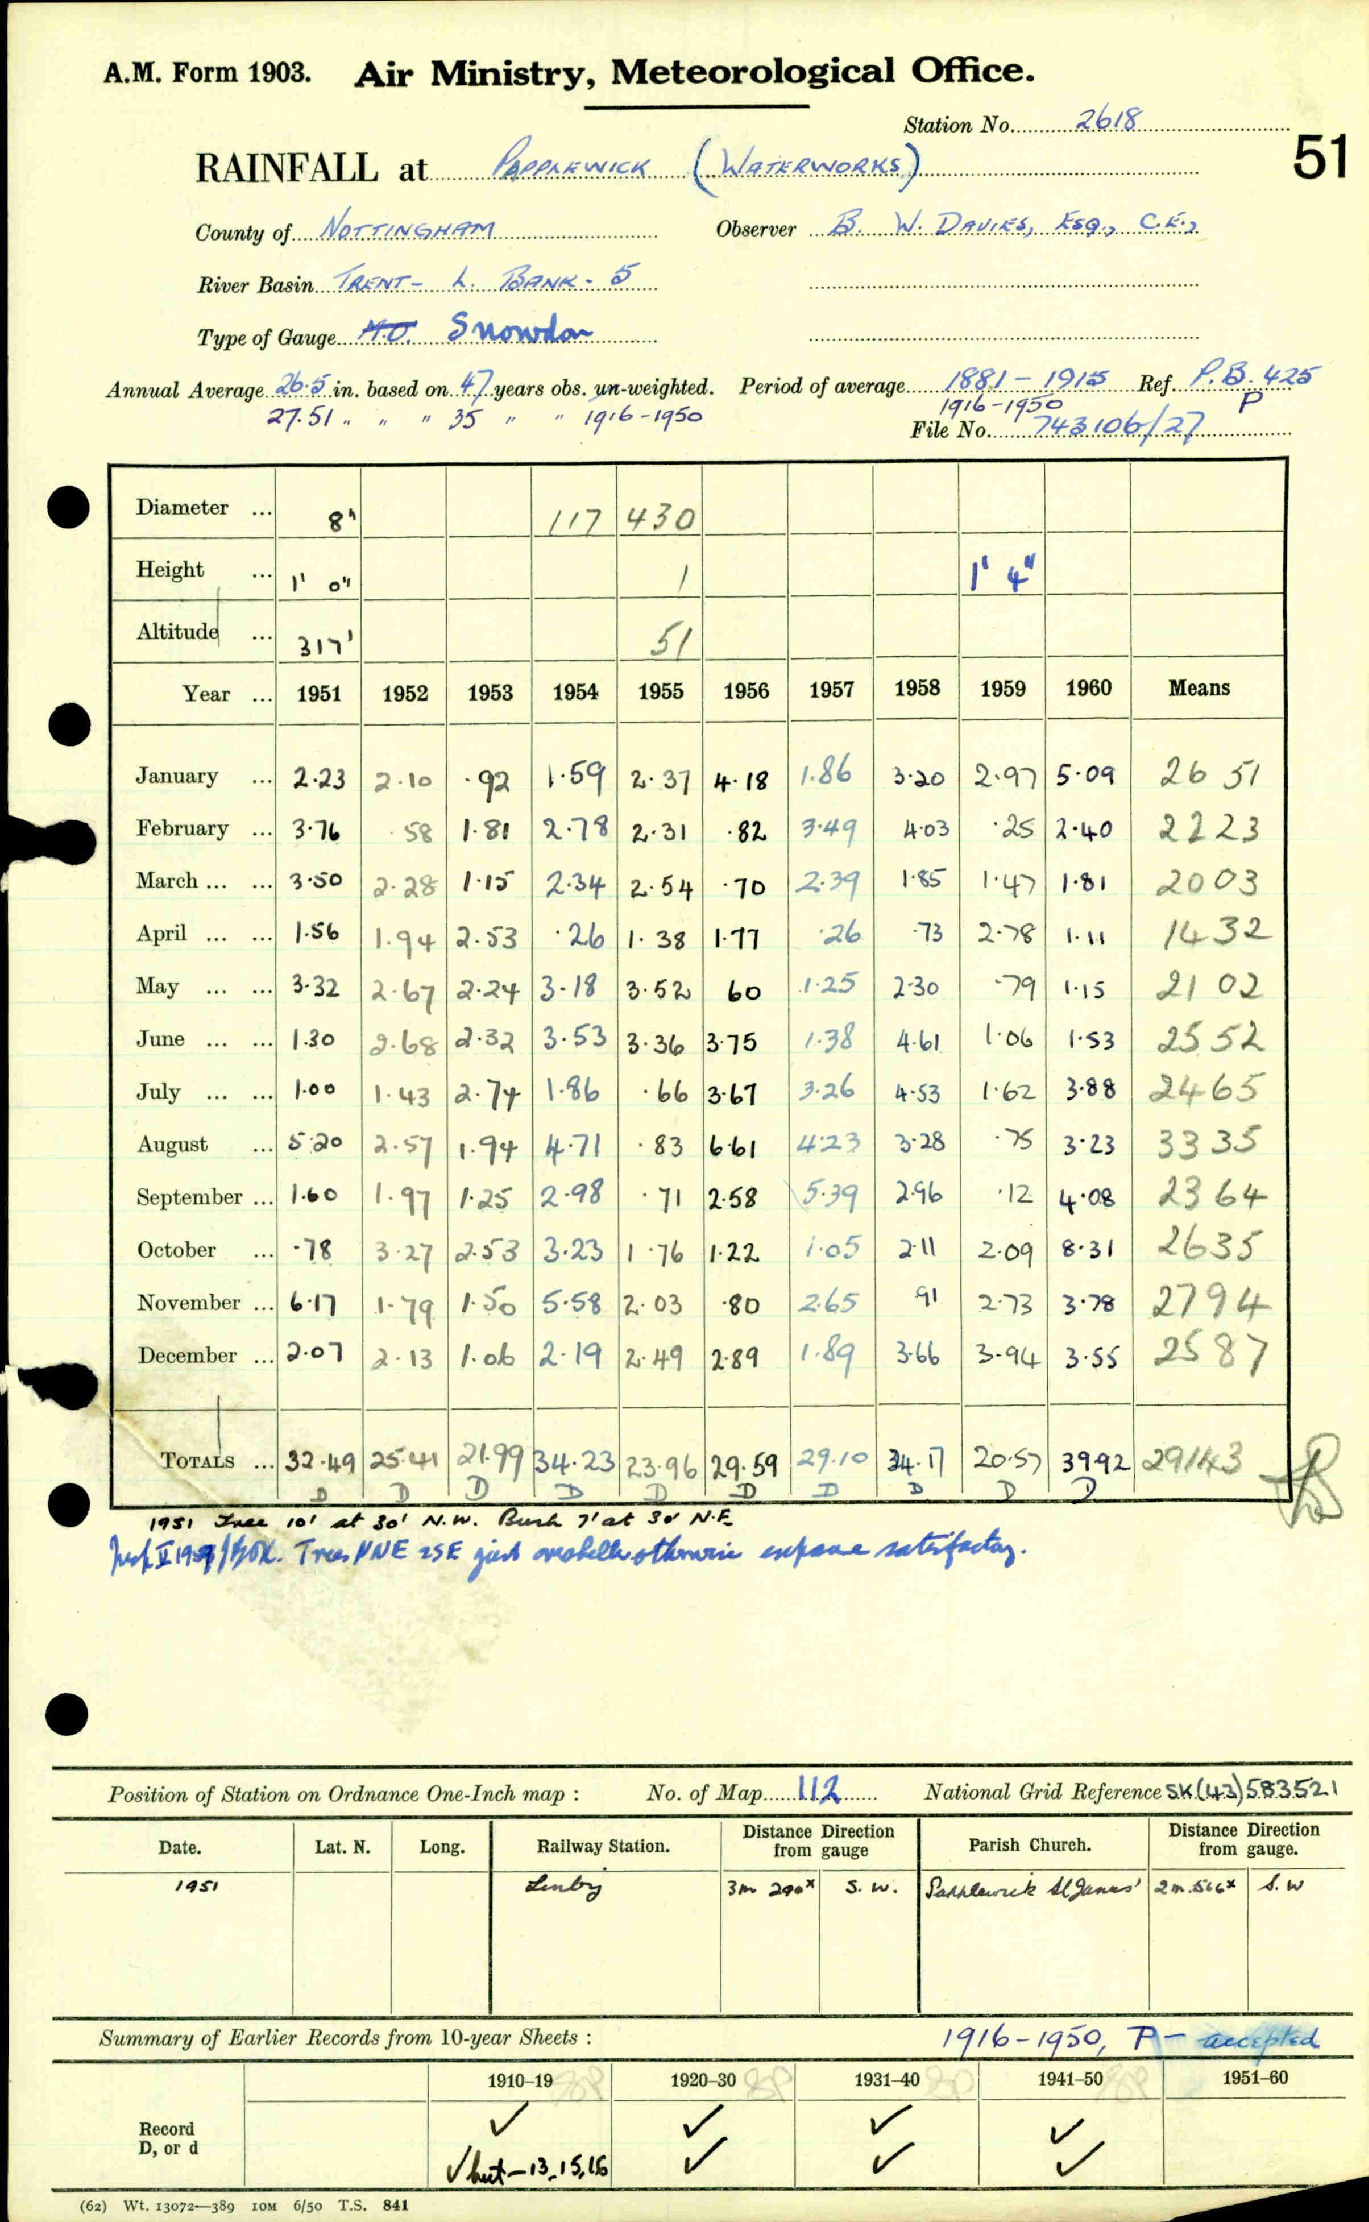 A.M. Form 1903. Air Ministry, Meteorological Office.
Station No. 2618
51
RAINFALL at PAPPLEWICK (WATERWORKS)
County of NOTTINGHAM Observer B. W. DAVIES, ESQ., C.E.,
River Basin TRENT - L. BANK - 5
Type of Gauge M.O. Snowdon
Annual Average 26.5 in. based on 47 years obs. un-weighted. Period of average 1881 - 1915 Ref. P.B. 425
27.51 " " " 35 " " 1916-1950 1916-1950 P
File No. 743106/27
Diameter ... 8" 117 430
Height ... 1' 0" 1 1' 4"
Altitude ... 317' 51
Year ... 1951 1952 1953 1954 1955 1956 1957 1958 1959 1960 Means
January ... 2.23 2.10 .92 1.59 2.37 4.18 1.86 3.20 2.97 5.09 26 51
February ... 3.76 .58 1.81 2.78 2.31 .82 3.49 4.03 .25 2.40 22 23
March ... ... 3.50 2.28 1.15 2.34 2.54 .70 2.39 1.85 1.47 1.81 20 03
April ... ... 1.56 1.94 2.53 .26 1.38 1.77 .26 .73 2.78 1.11 14 32
May ... ... 3.32 2.67 2.24 3.18 3.52 60 1.25 2.30 .79 1.15 21 02
June ... ... 1.30 2.68 2.32 3.53 3.36 3.75 1.38 4.61 1.06 1.53 25 52
July ... ... 1.00 1.43 2.74 1.86 .66 3.67 3.26 4.53 1.62 3.88 24 65
August ... 5.20 2.57 1.94 4.71 .83 6.61 4.23 3.28 .75 3.23 33 35
September ... 1.60 1.97 1.25 2.98 .71 2.58 5.39 2.96 .12 4.08 23 64
October ... .78 3.27 2.53 3.23 1.76 1.22 1.05 2.11 2.09 8.31 26 35
November ... 6.17 1.79 1.50 5.58 2.03 .80 2.65 91 2.73 3.78 27 94
December ... 2.07 2.13 1.06 2.19 2.49 2.89 1.89 3.66 3.94 3.55 25 87
TOTALS ... 32.49 25.41 21.99 34.23 23.96 29.59 29.10 34.17 20.57 39.92 29143
D D D D D D D D D D
1951 Tree 10' at 30' N.W. Bush 7' at 30' N.E.
Trees NNE SE otherwise exposure satisfactory.
Position of Station on Ordnance One-Inch map : No. of Map 112 National Grid Reference SK(43)583521
Date. Lat. N. Long. Railway Station. Distance Direction from gauge Parish Church. Distance Direction from gauge.
1951 Linby 3m 290x S. W. Papplewick St James' 2m. 516x S. W
Summary of Earlier Records from 10-year Sheets : 1916-1950, P - accepted
1910-19 1920-30 1931-40 1941-50 1951-60
Record ✓ ✓ ✓ ✓
D, or d ✓ but - 13, 15, 16 ✓ ✓ ✓
(62) Wt. 13072—389 10M 6/50 T.S. 841